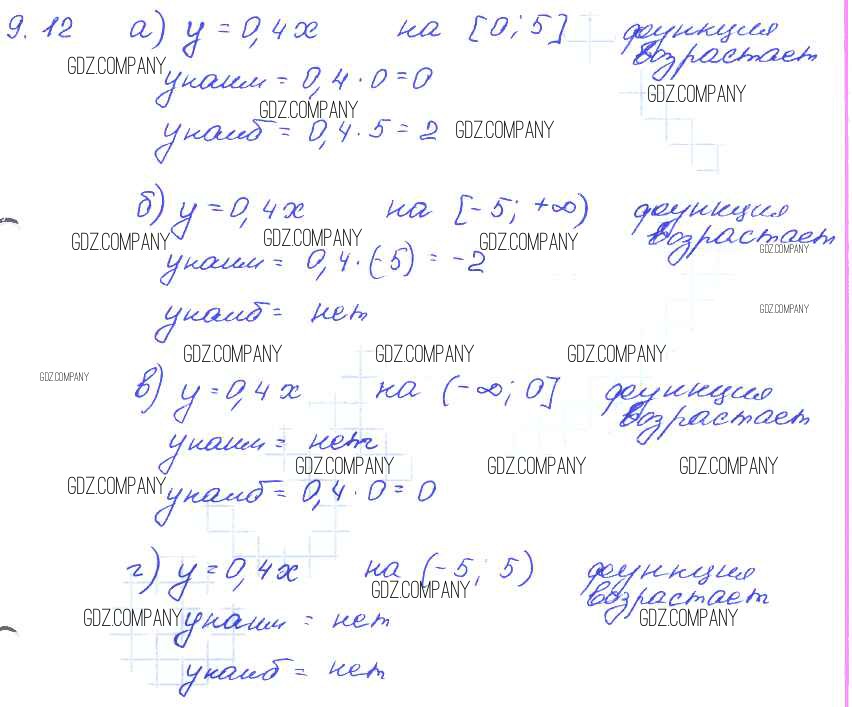 9.12 а) y = 0,4x на [0; 5] функция возрастает
GDZ.COMPANY
yнаим = 0,4 · 0 = 0
GDZ.COMPANY
GDZ.COMPANY
yнаиб = 0,4 · 5 = 2 GDZ.COMPANY
б) y = 0,4x на [-5; +∞) функция возрастает
GDZ.COMPANY GDZ.COMPANY GDZ.COMPANY GDZ.COMPANY
yнаим = 0,4 · (-5) = -2
yнаиб = нет GDZ.COMPANY
GDZ.COMPANY GDZ.COMPANY GDZ.COMPANY
GDZ.COMPANY
в) y = 0,4x на (-∞; 0] функция возрастает
yнаим = нет
GDZ.COMPANY GDZ.COMPANY GDZ.COMPANY
GDZ.COMPANY yнаиб = 0,4 · 0 = 0
г) y = 0,4x на (-5; 5) функция возрастает
GDZ.COMPANY
GDZ.COMPANY yнаим = нет GDZ.COMPANY
yнаиб = нет